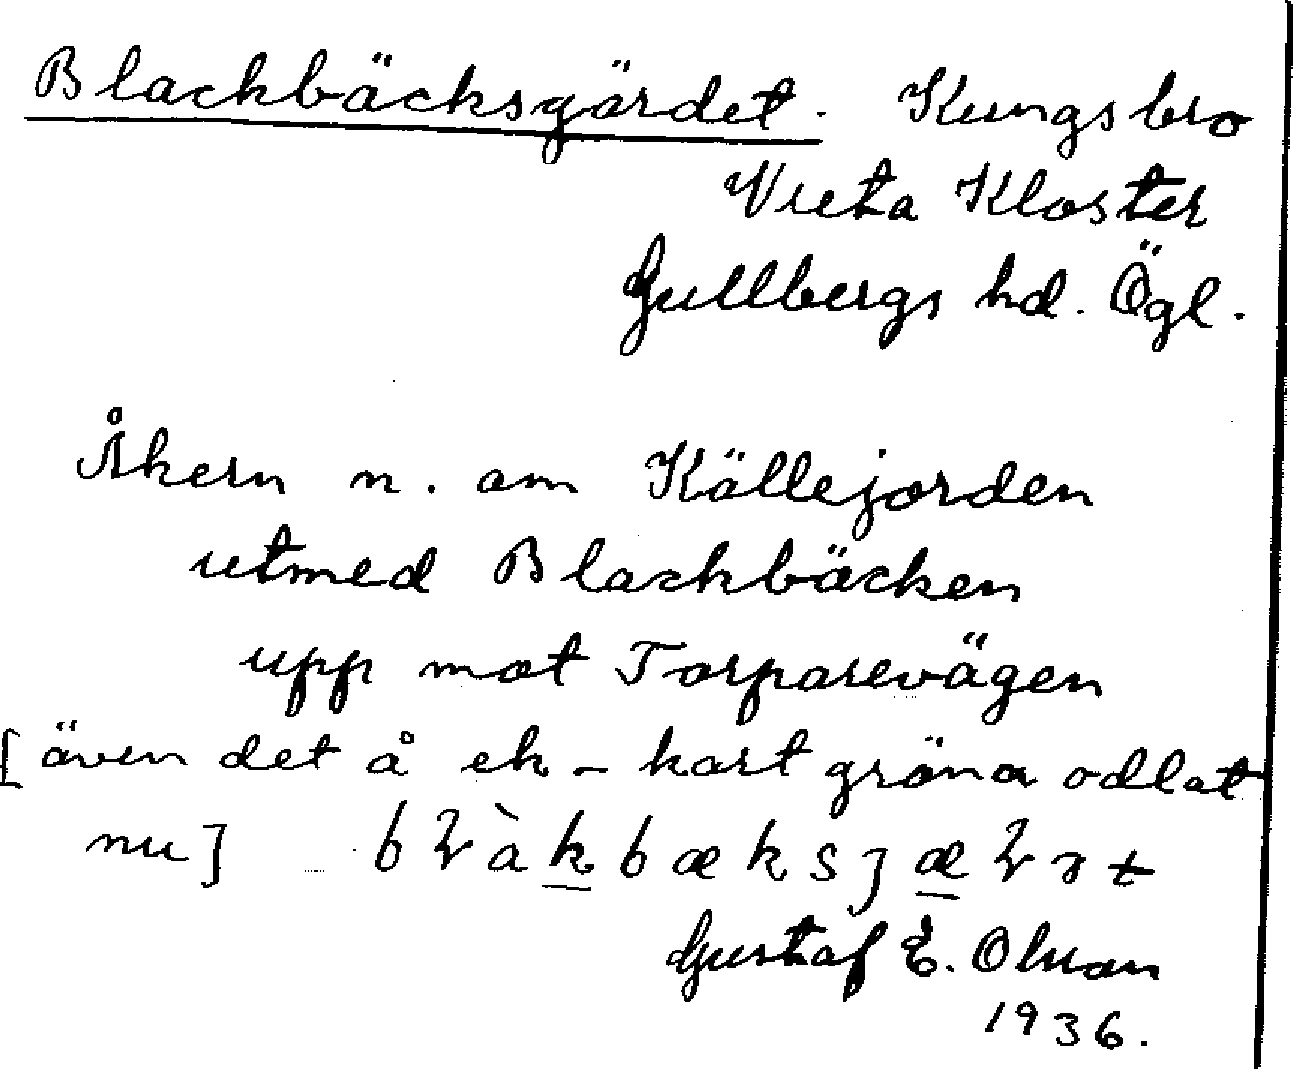 Blackbäcksgärdet. Kungsbro
Vreta Kloster
Gullbergs hd. Ögl.
Åkern n. om Källejorden
utmed Blackbäcken
upp mot Torparevägen
[även det å ek-kart gröna odlat
nu] bɽàkbæksjæɽət
Gustaf E. Olsson
1936.